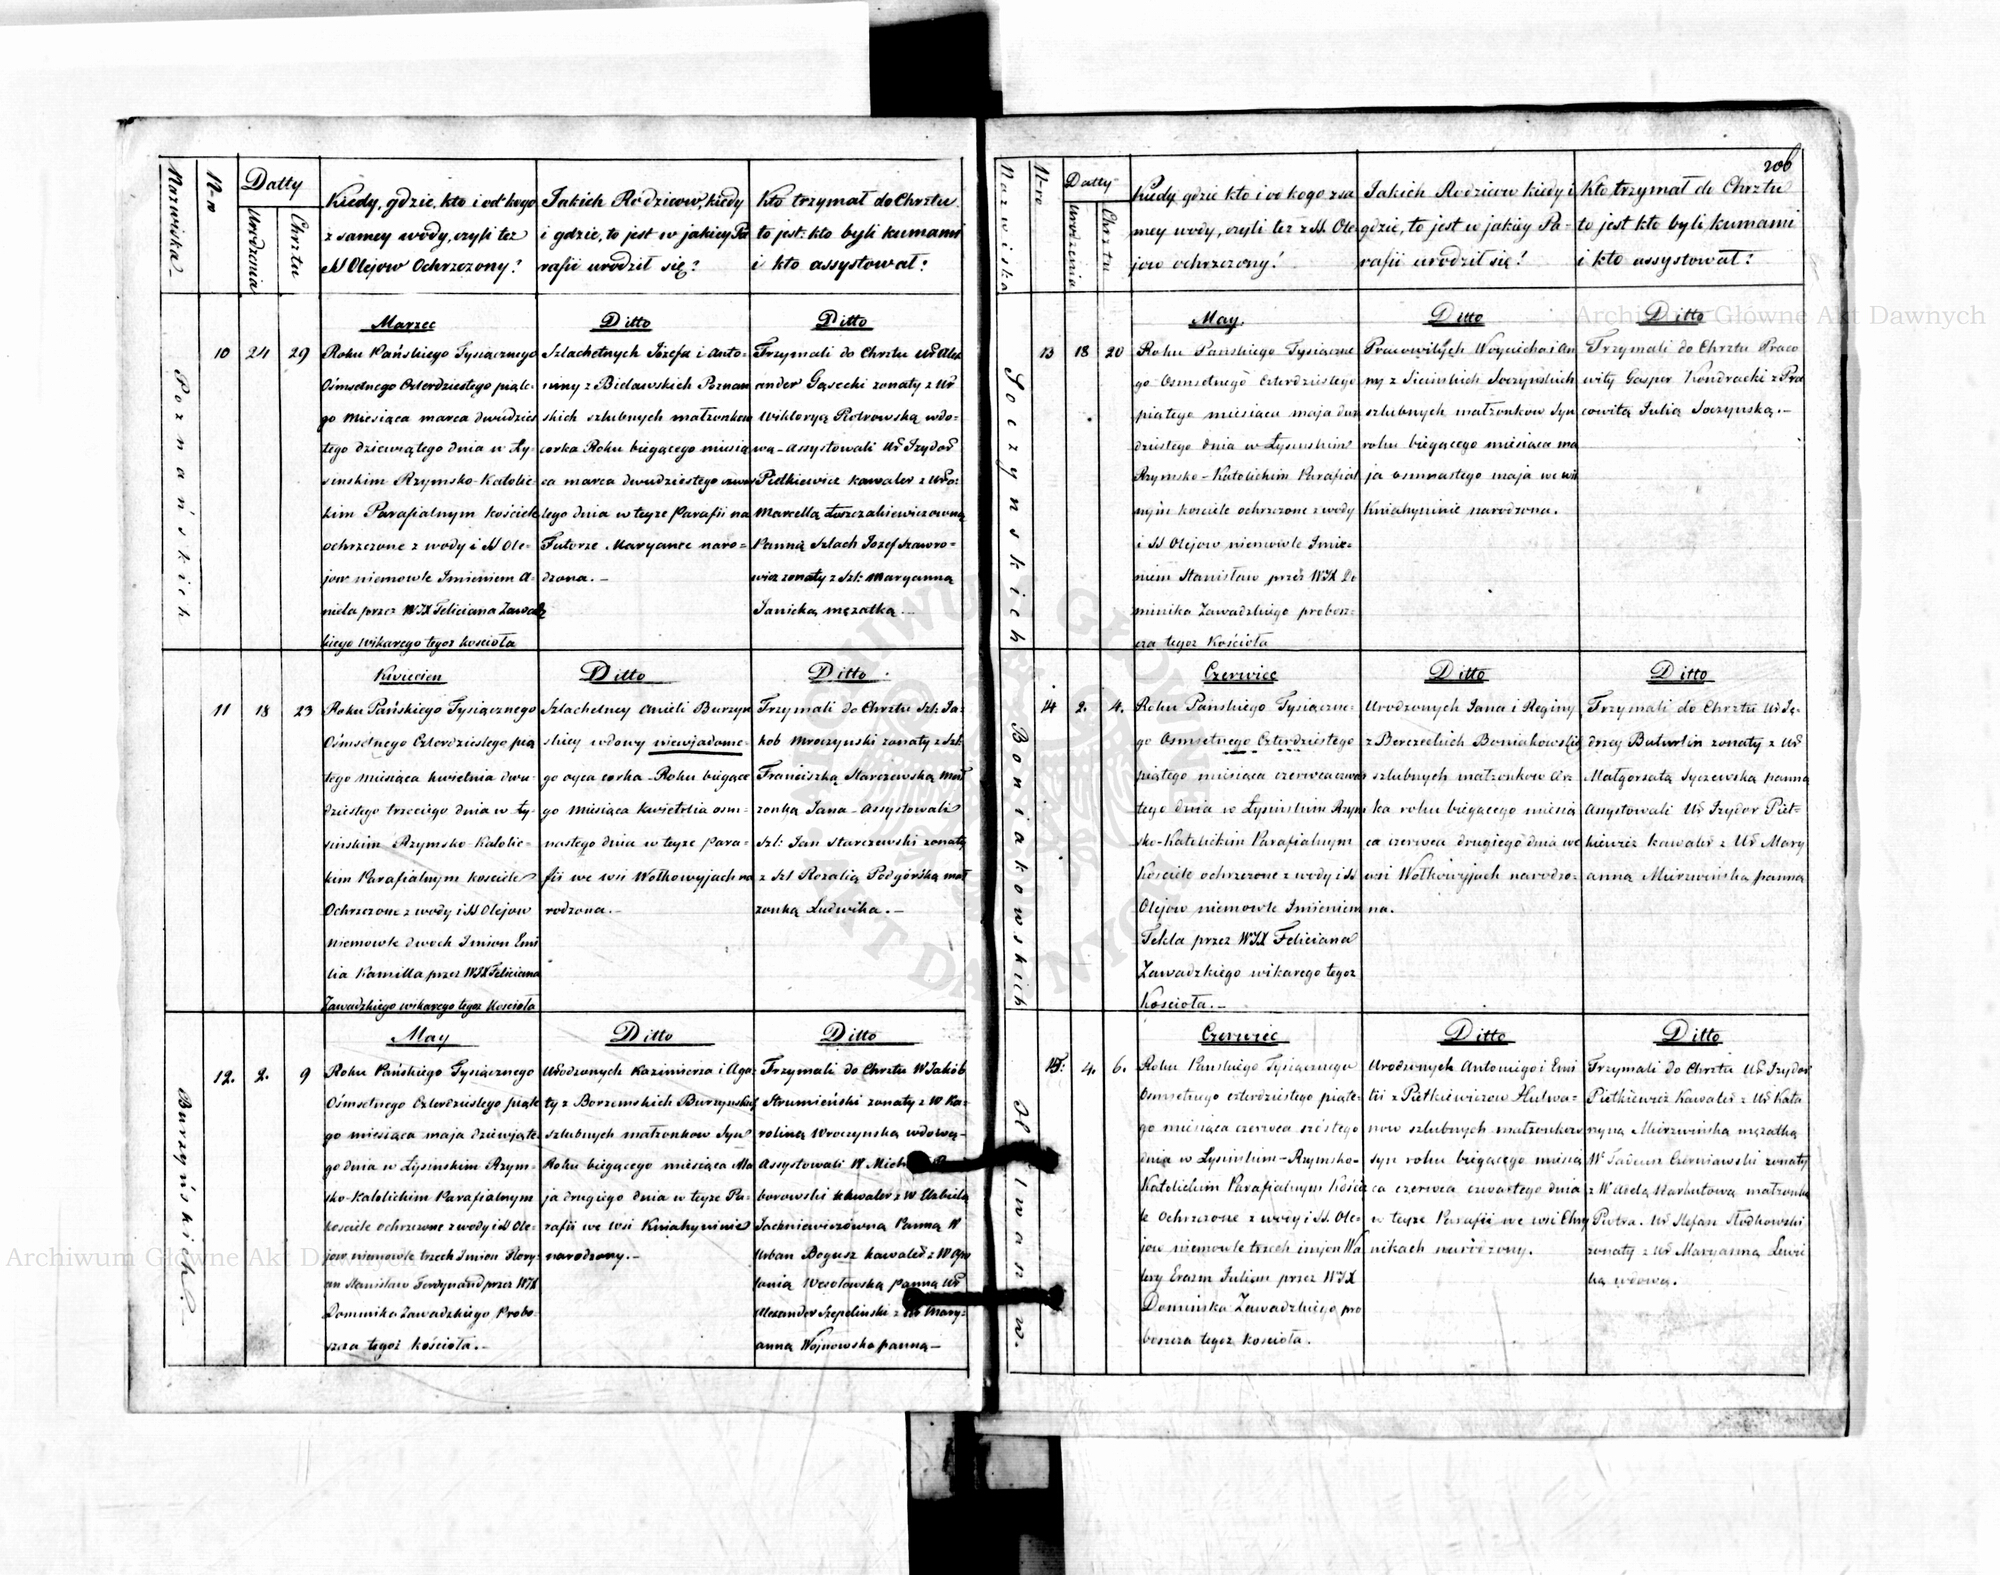 206
Nazwiska
Nro
Datty
Urodzenia
Chrztu
Kiedy, gdzie, kto i od kogo
z samey wody, czyli też
SS Olejow Ochrzczony?
Jakich Rodzicow, kiedy
i gdzie, to jest w jakiey Pa
rafii urodził się?
Kto trzymał do Chrztu
to jest: kto byli kumami
i kto assystował?
Poznańskich
10
24
29
Marzec
Roku Pańskiego Tysiącznego
Ośmsetnego Czterdziestego piąte-
go Miesiąca marca dwudzies
tego dziewiątego dnia w Ły-
sinskim Rzymsko-Katolic-
kim Parafialnym kościele
ochrzczone z wody i SS Ole-
jow niemowle Imieniem A-
niela przez WJX Feliciana Zawadz
kiego wikarego tegoż kościoła
Ditto
Szlachetnych Jozefa i Anto-
niny z Bielawskich Poznan
skich szlubnych małżonkow
corka Roku biegącego miesią
ca marca dwudziestego czwar
tego dnia w teyże Parafii na
Futorze Maryance naro-
dzona.-
Ditto
Trzymali do Chrztu Ur Alex
ander Gąsecki zonaty z Ur
Wiktoryą Piotrowską wdo-
wą-Assystowali Ur Izydor
Pietkiewicz kawaler z Uro:
Marcellą Łoszczakiewiczowną
Panną Szlach Jozef Szawro-
wicz zonaty z Szl: Maryanną
Janicką mężatką.-
11
18
23
Kwiecien
Roku Pańskiego Tysiącznego
Ośmsetnego Czterdziestego pią
tego miesiąca kwietnia dwu-
dziestego trzeciego dnia w Ły-
sinskim Rzymsko-Katolic-
kim Parafialnym kościele
Ochrzczone z wody i SS Olejow
Niemowle dwoch Imion Emi
lia Kamilla przez WJX Feliciana
Zawadzkiego wikarego tegoż Kościoła
Ditto
Szlachetney Anieli Burzyn
skiey wdowy niewiadome-
go oyca corka-Roku biegące
go Miesiąca Kwietnia osm-
nastego dnia w teyże Para-
fii we wsi Wołkowyjach na
rodzona.-
Ditto
Trzymali do Chrztu Szl: Ja-
kob Mroczynski zonaty z Szl:
Franciszką Starczewską mał
zonką Jana-Assystowali
Szl: Jan Starczewski zonaty
z Szl Rozalią Podgórską mał
zonką Ludwika.-
Burzyńskich
12.
2.
9
May
Roku Pańskiego Tysiącznego
Ośmsetnego Czterdziestego piąte
go miesiąca maja dziewiąte
go dnia w Łysinskim Rzym-
sko-Katolickim Parafialnym
kościele ochrzczone z wody i SS Ole-
jow niemowle trzech Imion Flory-
an Stanisław Ferdynand przez WJX
Dominika Zawadzkiego Probo-
szcza tegoż kościoła.-
Ditto
Urodzonych Kazimierza i Aga-
ty z Borzemskich Burzynskich
szlubnych małżonkow Syn
Roku biegącego miesiąca Ma
ja drugiego dnia w teyze Pa-
rafii we wsi Kniahyninie
narodzony.-
Ditto
Trzymali do Chrztu W Jakób
Strumieński zonaty z W Ka-
roliną Wroczynską wdową-
Assystowali W. Mich
borowski kawaler z W Izabelą
Jackniewiczówną Panną W
Urban Bogusz kawaler z W Apo
lonią Wesołowską panną Ur
Alexander Szepelinski z Mary-
anną Wojnowską panną-
Nazwiska
Nro
Datty
Urodzenia
Chrztu
Kiedy gdzie kto i od kogo z sa
mey wody, czyli też z SS. Ole
jow ochrzczony?
Jakich Rodzicow kiedy i
gdzie, to jest w jakiey Pa-
rafii urodził się?
Kto trzymał do Chrztu
to jest kto byli kumami
i kto assystował?
Soczynskich
13
18
20
May.
Roku Pańskiego Tysiączne
go Osmsetnego Czterdziestego
piątego miesiąca maja dwu
dziestego dnia w Łysinskim
Rzymsko-Katolickim Parafial
nym kosciele ochrzczone z wody
i SS. Olejow niemowle Imie-
niem Stanisław przez WJX Do
minika Zawadzkiego probosz-
cza tegoż Kościoła
Ditto
Pracowitych Woyciecha i An
ny z Sicinskich Soczynskich
szlubnych małżonkow Syn
roku biegącego miesiąca ma
ja osmnastego maja we wsi
Kniahyninie narodzona.
Ditto
Trzymali do Chrztu Praco
wity Gasper Kondracki z Pra
cowitą Julią Soczynską.-
Boniakowskich
14
2.
4.
Czerwiec
Roku Pańskiego Tysiączne-
go Osmsetnego Czterdziestego
piątego miesiąca czerwca czwar
tego dnia w Łysinskim Rzym
sko-Katolickim Parafialnym
Kościele ochrzczone z wody i SS
Olejow niemowle Imieniem
Tekla przez WJX Feliciana
Zawadzkiego wikarego tegoż
Kościoła.-
Ditto
Urodzonych Jana i Reginy
z Berezeckich Boniakowskich
szlubnych małżonkow cor
ka roku biegącego miesią
ca czerwca drugiego dnia we
wsi Wołkowyjach narodzo-
na.
Ditto
Trzymali do Chrztu Ur Ję-
drzey Buturlin zonaty z Ur
Małgorzatą Syczewską panną
Assystowali Ur Izydor Piet-
kiewicz kawaler z Ur Mary
anną Mierzwińską panną
Hulwanow.
15.
4.
6.
Czerwiec
Roku Pańskiego Tysiącznego
Osmsetnego czterdziestego piąte-
go miesiąca czerwca szóstego
dnia w Łysinskim-Rzymsko-
Katolickim Parafialnym kości
le Ochrzczone z wody i SS. Ole-
jow niemowle trzech imjon Wa
lery Erazm Julian przez WJX
Dominika Zawadzkiego pro
boszcza tegoż kościoła.
Ditto
Urodzonych Antoniego i Emi
lii z Pietkiewiczow Hulwa-
now szlubnych małżonkow
syn roku biegącego miesią
ca czerwca czwartego dnia
w teyze Parafii we wsi Chry
nikach narodzony.
Ditto
Trzymali do Chrztu Ur Izydor
Pietkiewicz Kawaler z Ur Kata
rzyną Mierzwińską mężatką
Wr Tadeusz Czerniawski zonaty
z W Adelą Narbutową małżonką
Piotra. Ur Stefan Słodkowski
zonaty z Ur Maryanną Lewic
ką wdową.
Archiwum Główne Akt Dawnych
Archiwum Główne Akt Dawnych